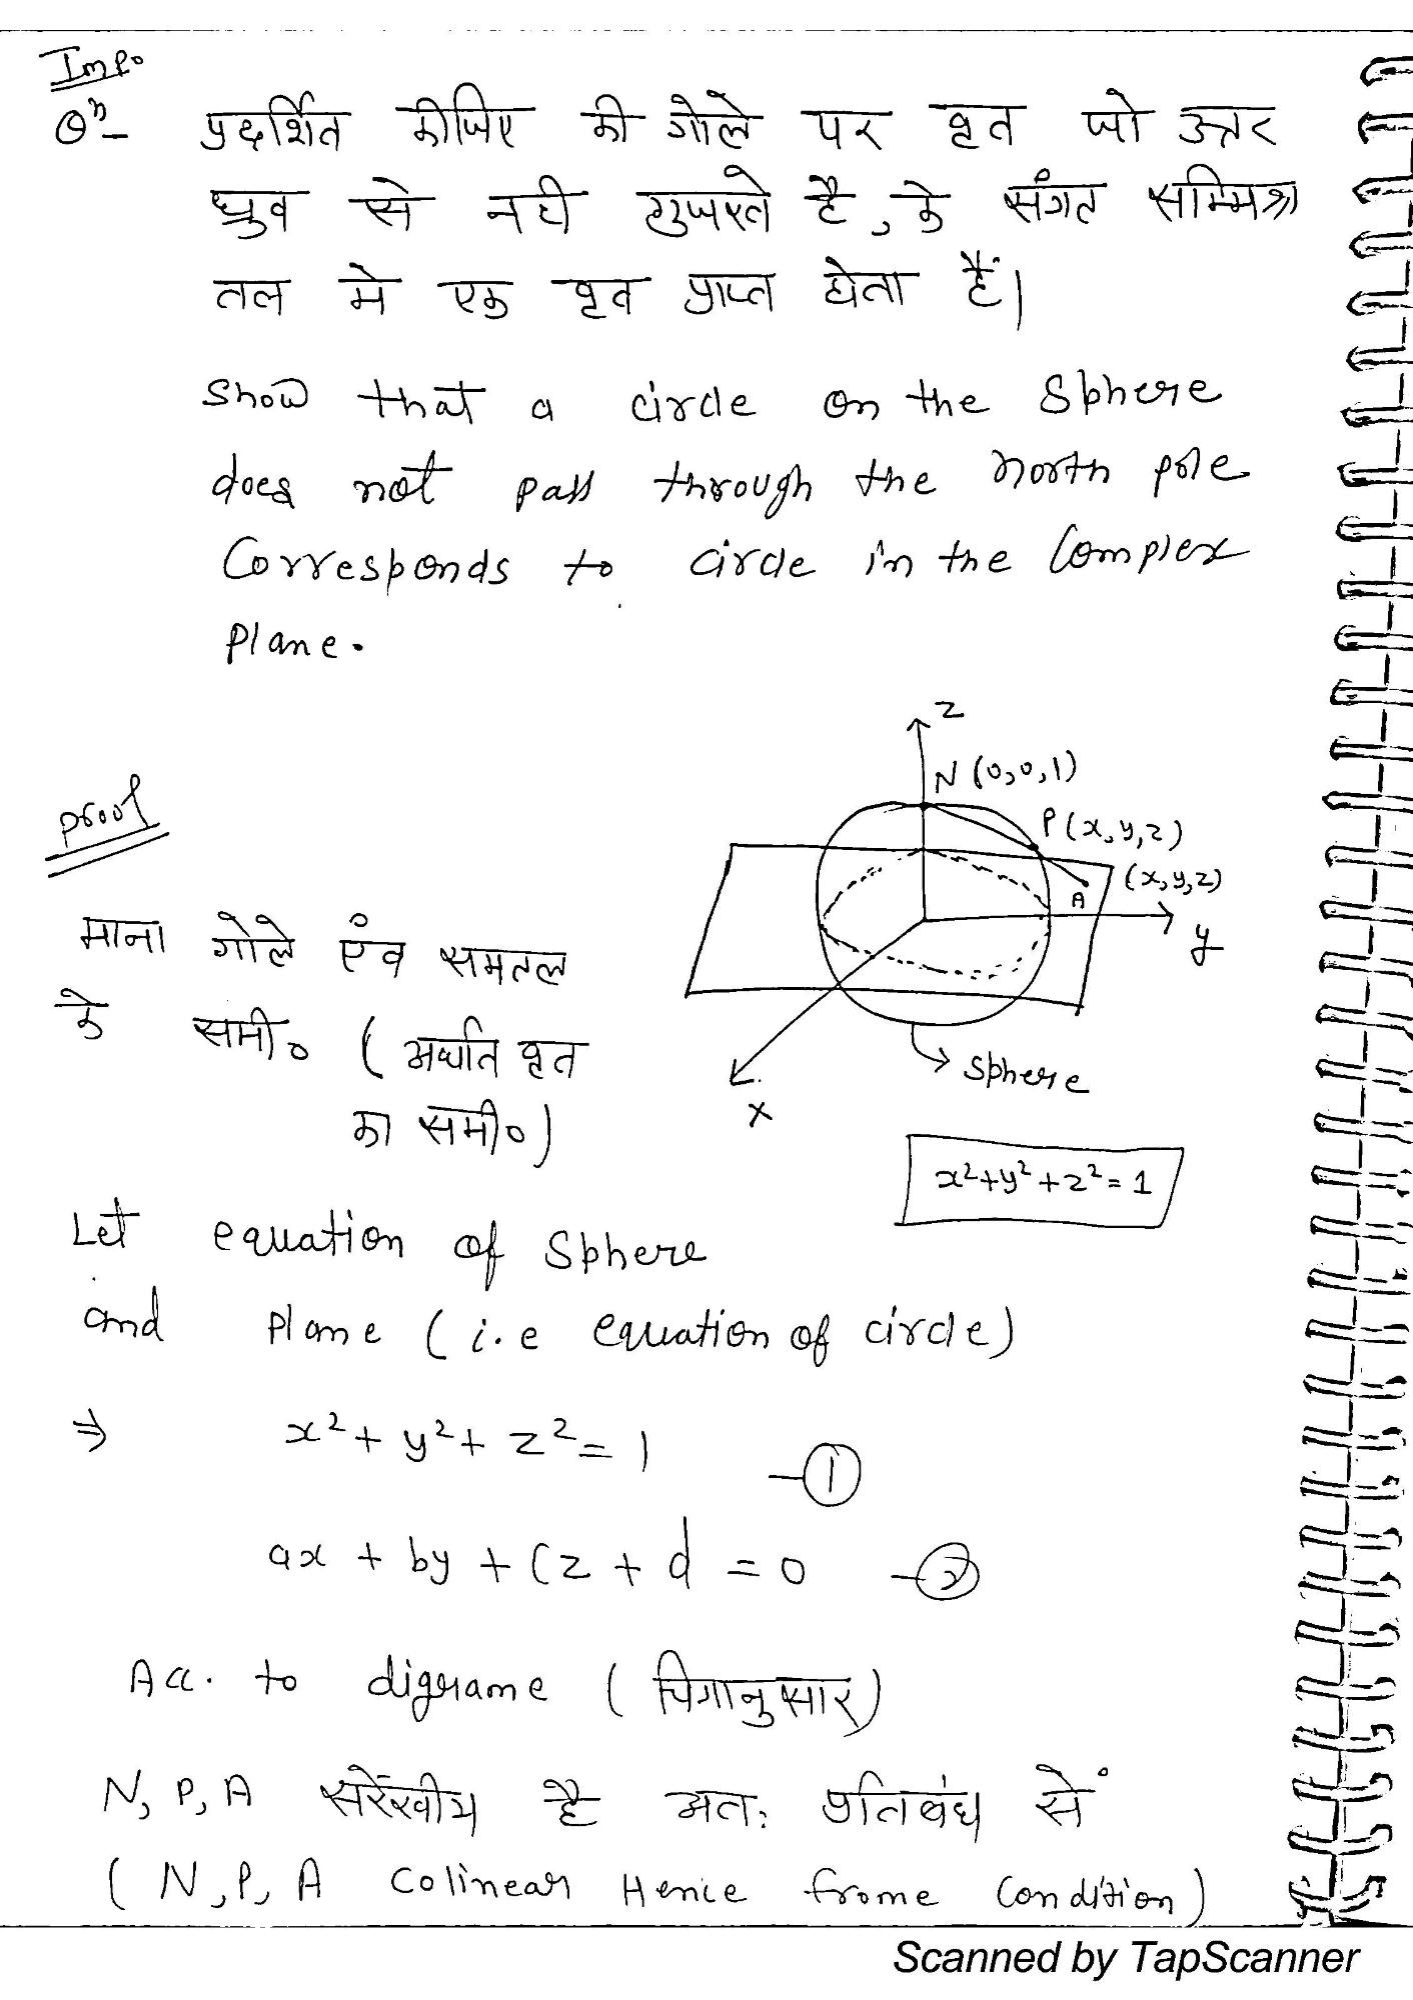 Imp.
Qn- प्रदर्शित कीजिए की गोले पर वृत जो उत्तर
ध्रुव से नही गुजरते है, के संगत सम्मिश्र
तल मे एक वृत प्राप्त होता हैं।
Show that a circle on the Sphere
does not pass through the north pole
Corresponds to circle in the Complex
Plane.
Z
N (0,0,1)
P(x,y,z)
(x,y,z)
A
y
x
Sphere
x²+y²+z²=1
proof
माना गोले एंव समतल
के समी० (अर्थात वृत
का समी०)
Let equation of Sphere
and Plane (i.e equation of circle)
⇒ x²+ y²+ z²= 1 -①
ax + by + Cz + d = 0 -②
Acc. to digrame (चित्रानुसार)
N, P, A सरेंखीय है अतः प्रतिबंध सें
(N, P, A Colinear Hence frome Condition)
Scanned by TapScanner